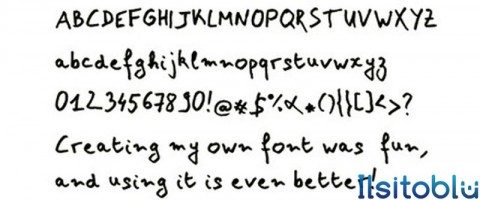 ABCDEFGHIJKLMNOPQRSTUVWXYZ
abcdefghijklmnopqrstuvwxyz
01234567890!@*$%&*(){}[]<>?
Creating my own font was fun,
and using it is even better!
Ilsitoblu